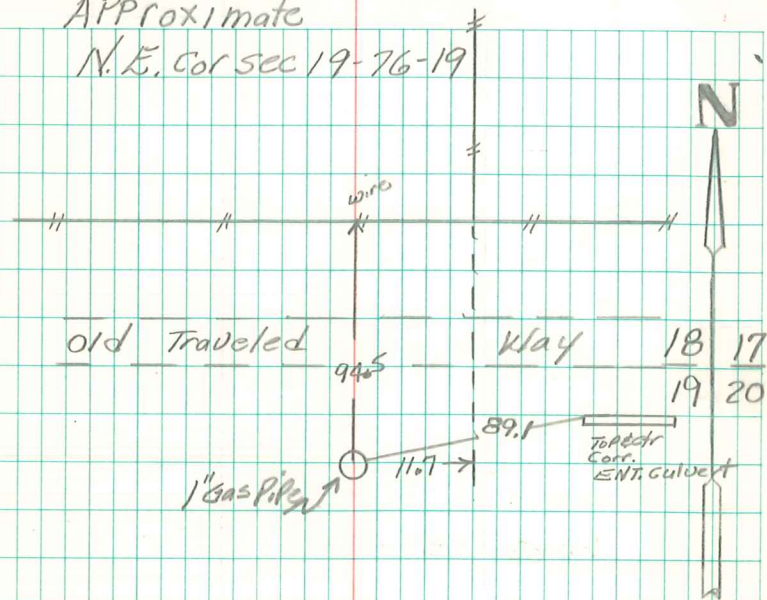 Approximate
N.E. Cor sec 19-76-19
N
wire
Old Traveled Way
18 17
19 20
94.5
89.1
11.7
Top & ctr
Corr.
ENT. Culvert
1" Gas Pipe